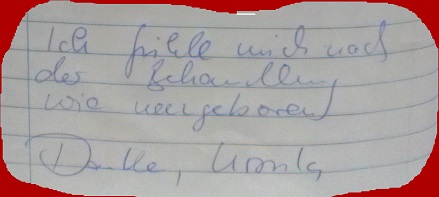 Ich fühle mich nach
der Behandlung
wie neugeboren
Danke, Ursula